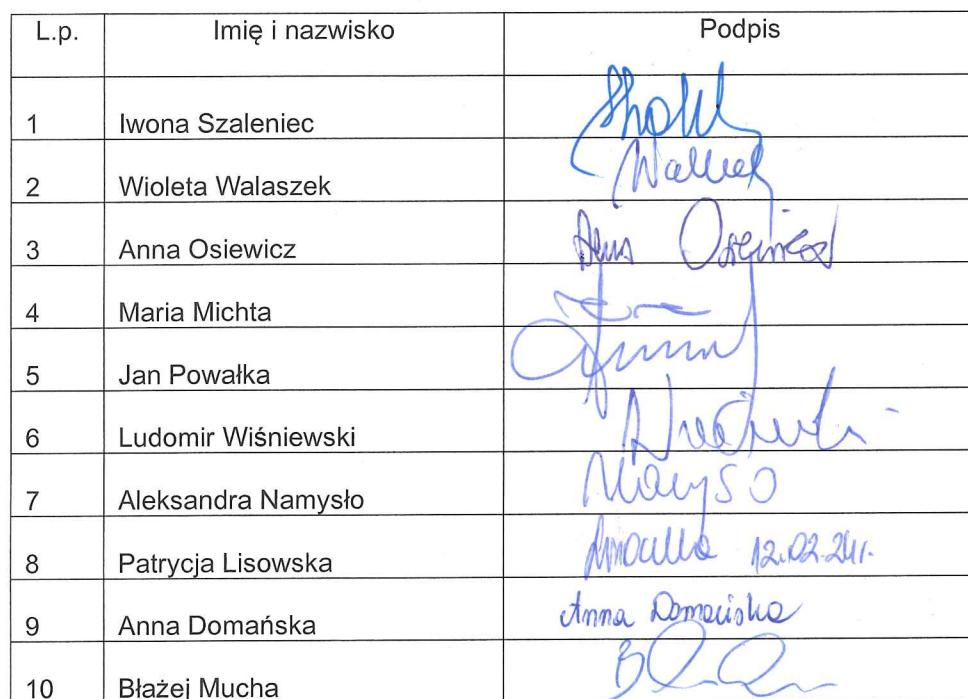 L.p. Imię i nazwisko Podpis
1 Iwona Szaleniec
2 Wioleta Walaszek
3 Anna Osiewicz Anna Osiewicz
4 Maria Michta
5 Jan Powałka
6 Ludomir Wiśniewski
7 Aleksandra Namysło
8 Patrycja Lisowska 12.02.24r.
9 Anna Domańska Anna Domańska
10 Błażej Mucha